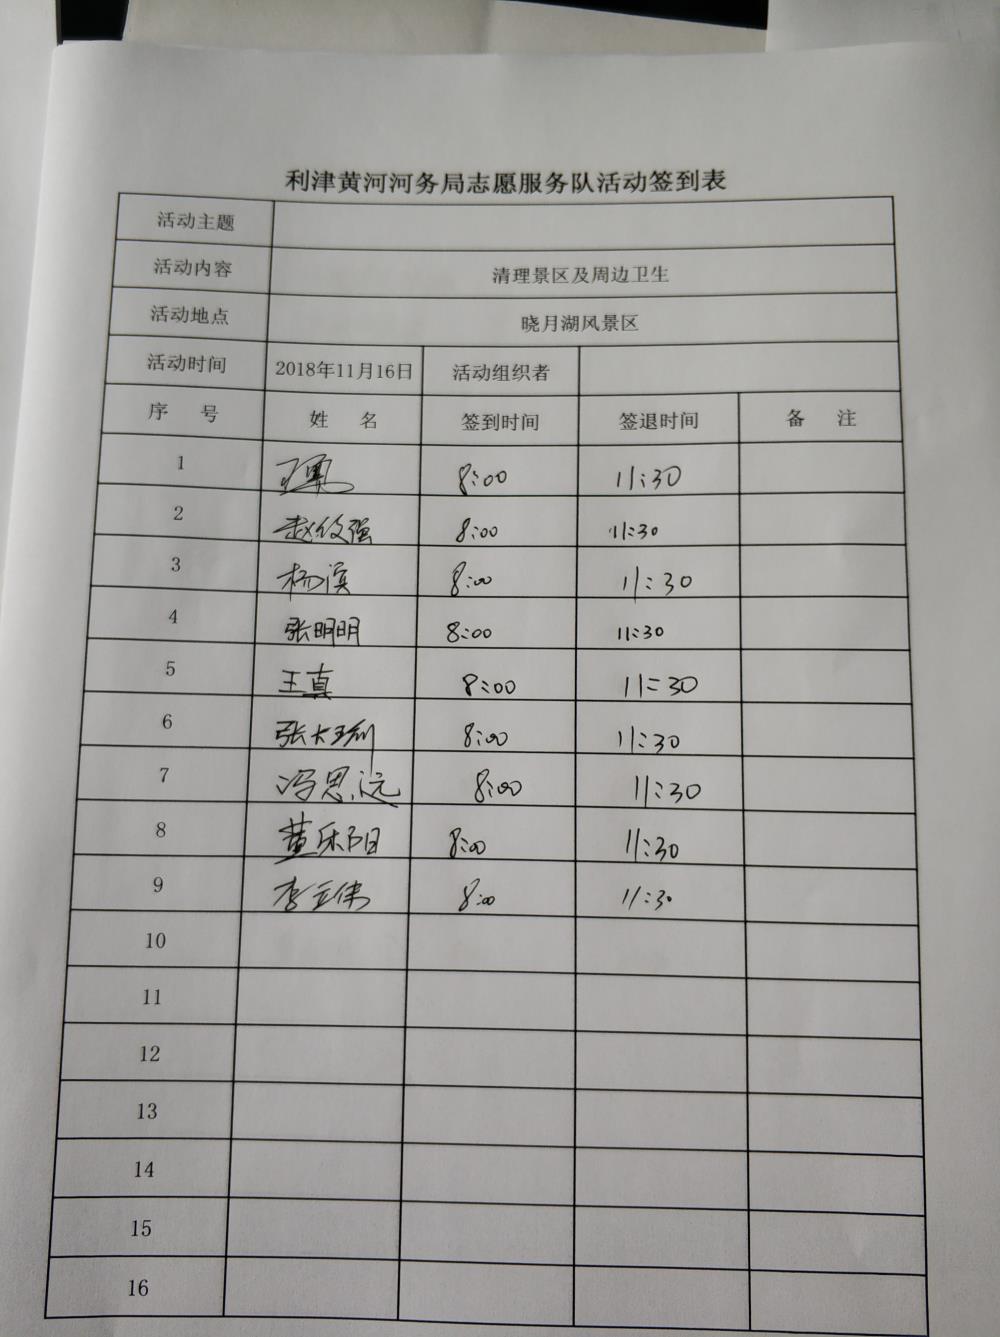 利津黄河河务局志愿服务队活动签到表
活动主题
活动内容 清理景区及周边卫生
活动地点 晓月湖风景区
活动时间 2018年11月16日 活动组织者
序 号 姓 名 签到时间 签退时间 备 注
1 8:00 11:30
2 赵俊强 8:00 11:30
3 杨滨 8:00 11:30
4 张明明 8:00 11:30
5 王真 8:00 11:30
6 张大利 8:00 11:30
7 冯思远 8:00 11:30
8 董乐阳 8:00 11:30
9 李立伟 8:00 11:30
10
11
12
13
14
15
16